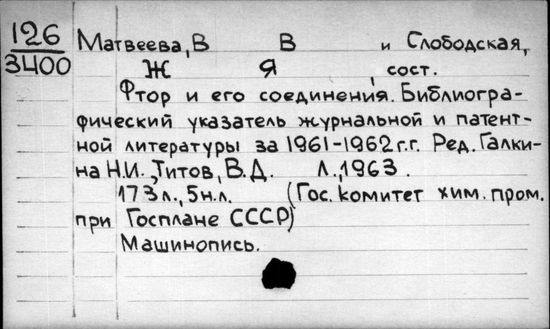 126 Матвеева, В В и Слободская,
3400 Ж Я , сост.
Фтор и его соединения. Библиогра-
фический указатель журнальной и патент-
ной литературы за 1961-1962 г.г. Ред. Галки-
на Н.И., Титов, В.Д. Л., 1963.
173 л., 5 н.л. (Гос. комитет хим. пром.
при Госплане СССР)
Машинопись.